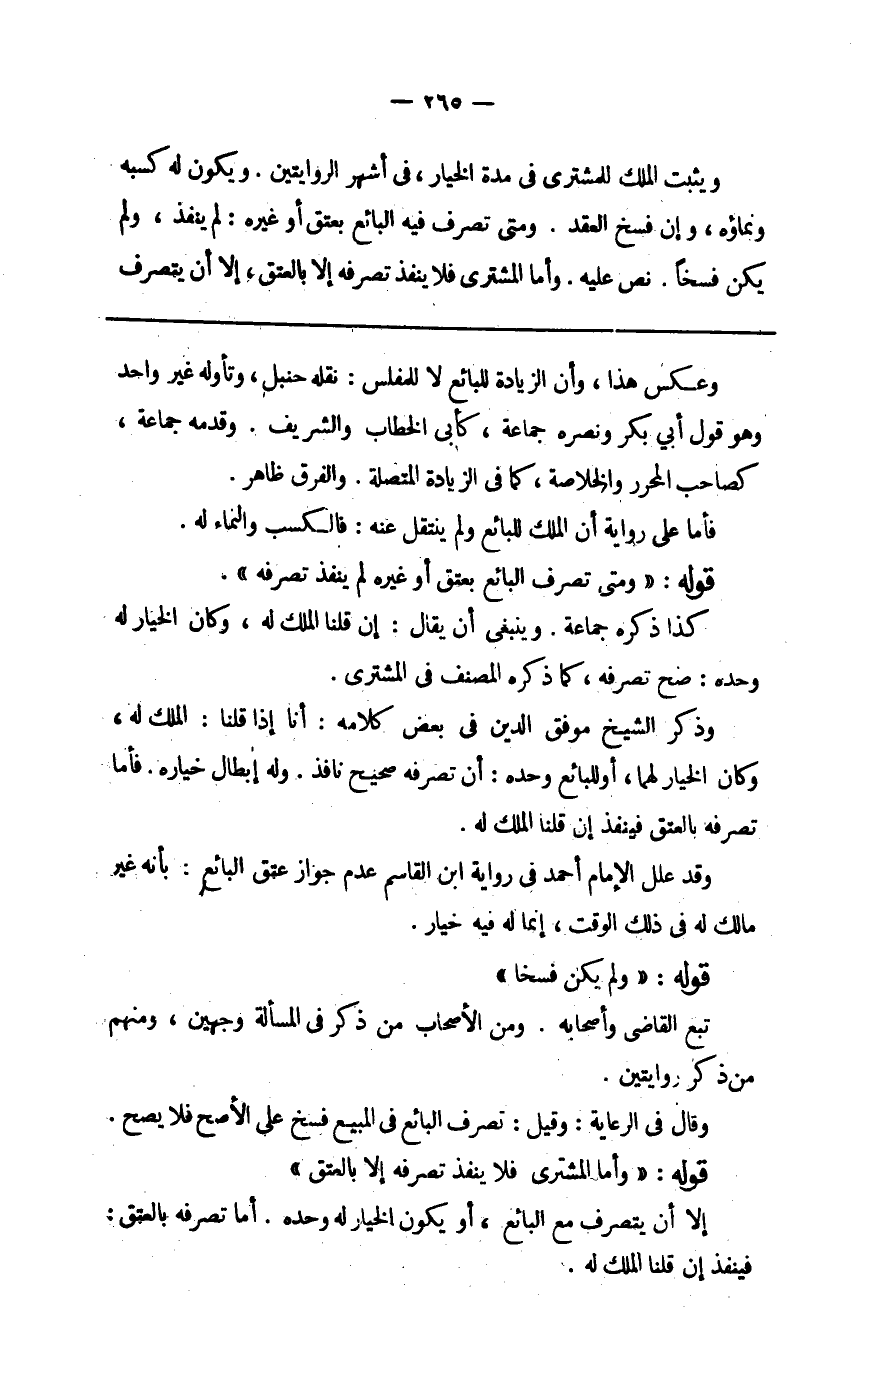 — ٢٦٥ —
ويثبت الملك للمشترى فى مدة الخيار ، فى أشهر الروايتين . ويكون له كسبه
ونماؤه ، وإن فسخ العقد . ومتى تصرف فيه البائع بعتق أو غيره : لم ينفذ ، ولم
يكن فسخاً . نص عليه . وأما المشترى فلا ينفذ تصرفه إلا بالعتق ، إلا أن يتصرف
وعكس هذا ، وأن الزيادة للبائع لا للمفلس : نقله حنبل ، وتأوله غير واحد
وهو قول أبي بكر ونصره جماعة ، كأبى الخطاب والشريف . وقدمه جماعة ،
كصاحب المحرر والخلاصة ، كما فى الزيادة المتصلة . والفرق ظاهر .
فأما على رواية أن الملك للبائع ولم ينتقل عنه : فالكسب والنماء له .
قوله : « ومتى تصرف البائع بعتق أو غيره لم ينفذ تصرفه » .
كذا ذكره جماعة . وينبغى أن يقال : إن قلنا الملك له ، وكان الخيار له
وحده : صح تصرفه ، كما ذكره المصنف فى المشترى .
وذكر الشيخ موفق الدين فى بعض كلامه : أنا إذا قلنا : الملك له ،
وكان الخيار لهما ، أو للبائع وحده : أن تصرفه صحيح نافذ . وله إبطال خياره . فأما
تصرفه بالعتق فينفذ إن قلنا الملك له .
وقد علل الإمام أحمد فى رواية ابن القاسم عدم جواز عتق البائع : بأنه غير
مالك له فى ذلك الوقت ، إنما له فيه خيار .
قوله : « ولم يكن فسخا »
تبع القاضى وأصحابه . ومن الأصحاب من ذكر فى المسألة وجهين ، ومنهم
من ذكر روايتين .
وقال فى الرعاية : وقيل : تصرف البائع فى المبيع فسخ على الأصح فلا يصح .
قوله : « وأما المشترى فلا ينفذ تصرفه إلا بالعتق »
إلا أن يتصرف مع البائع ، أو يكون الخيار له وحده . أما تصرفه بالعتق :
فينفذ إن قلنا الملك له .